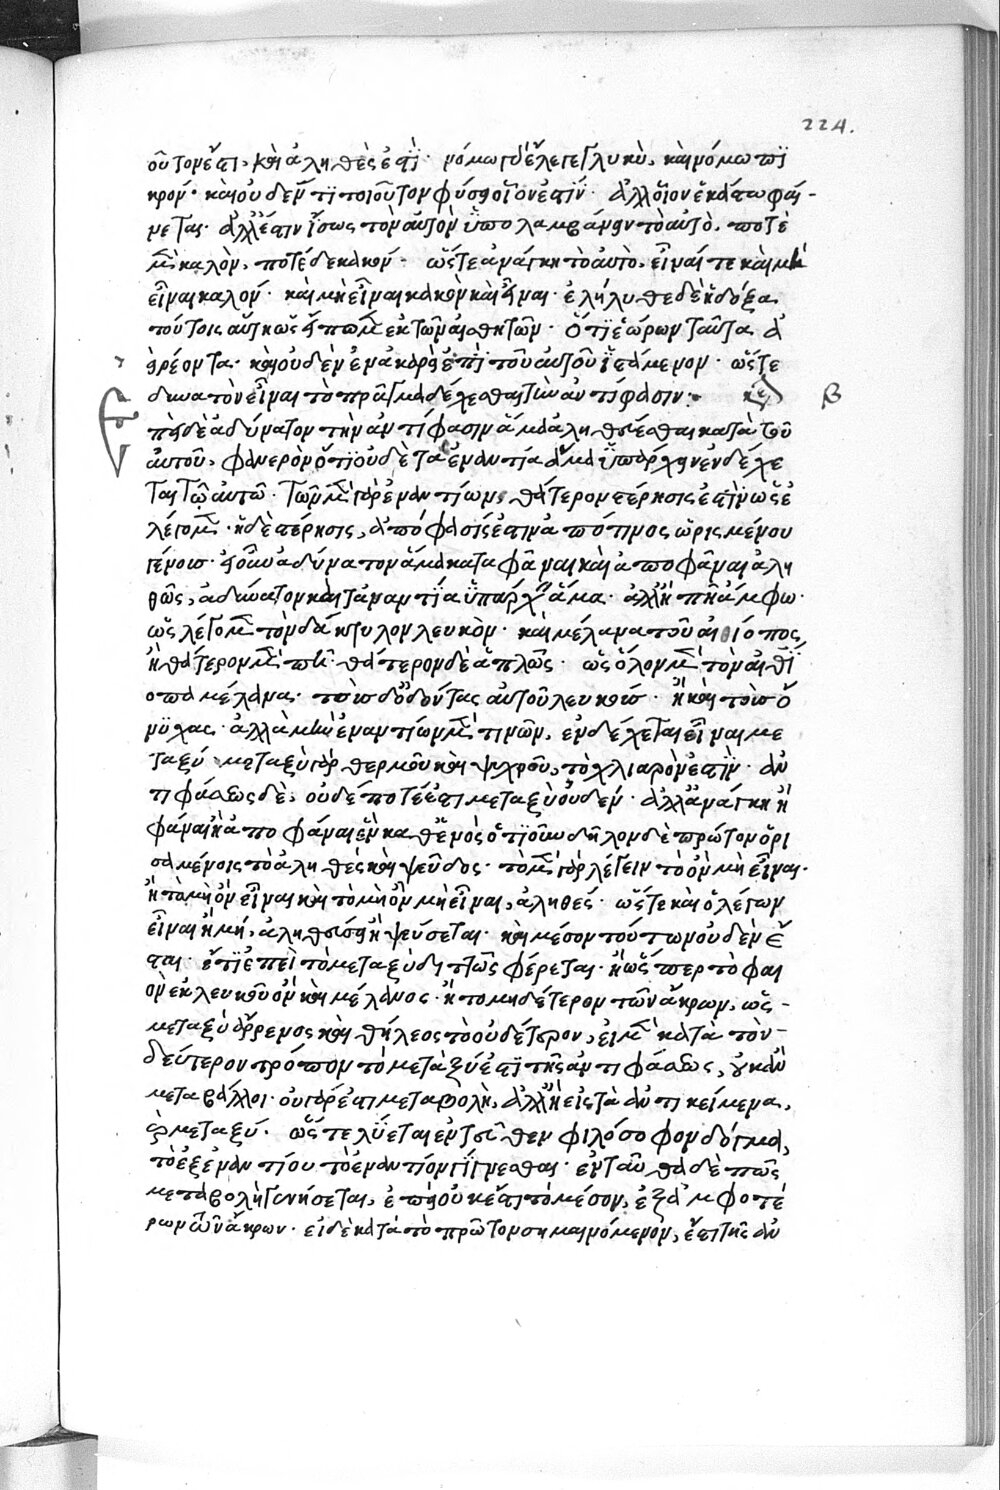 224.
οὕτον ἐστι, καὶ ἀληθὲς ἐστὶ· νόμω γὰρ ἔλεγε γλυκὺ, καὶ νόμω πι
κρόν· καὶ οὐδέν τι τοιοῦτον φύσει οἷόν ἐστιν· ἀλλ' οἷον ἑκάστω φαί-
νεται. ἀλλ' ἔστιν ἴσως τὸν αὐτὸν ὑπολαμβάνειν τὸ αὐτὸ, ποτὲ
μὲν καλὸν, ποτὲ δὲ κακόν· ὥστε ἀνάγκη τὸ αὐτὸ, εἶναί τε καὶ μὴ
εἶναι καλόν· καὶ μὴ εἶναι κακὸν καὶ εἶναι· ἐλήλυθε δὲ ἡ δόξα
τούτοις αὕτη ὡς εἴπομεν ἐκ τῶν αἰσθητῶν· ὅτι ἑώρων ταῦτα ἀ
εὶ ῥέοντα· καὶ οὐδὲν ἐν ἀκαρεῖ ἐπὶ τοῦ αὐτοῦ ἱστάμενον· ὥστε
δυνατὸν εἶναι τὸ πρᾶγμα δέχεσθαι τὴν ἀντίφασιν:
β
ἐπεὶ δὲ ἀδύνατον τὴν ἀντίφασιν ἅμα ἀληθεύεσθαι κατὰ τοῦ
αὐτοῦ, φανερὸν ὅτι οὐδὲ τὰ ἐναντία ἅμα ὑπάρχειν ἐνδέχε
ται τῷ αὐτῶ· τῶν μὲν γὰρ ἐναντίων, θάτερον στέρησις ἐστὶν ὡς ἐ
λέγομεν· ἡ δὲ στέρησις, ἀπόφασίς ἐστιν ἀπό τινος ὡρισμένου
γένους· εἰ οὖν ἀδύνατον ἅμα καταφάναι καὶ ἀποφάναι ἀλη
θῶς, ἀδύνατον καὶ τἀναντία ὑπάρχειν ἅμα· ἀλλ' ἢ πῆ ἄμφω·
ὡς λέγομεν τὸν δάκτυλον λευκὸν· καὶ μέλανα τοῦ αἰθίοπος,
ἢ θάτερον μὲν πῆ· θάτερον δὲ ἁπλῶς· ὡς ὅλον μὲν τὸν αἰθί
οπα μέλανα· τοὺς δὲ ὀδόντας αὐτοῦ λευκοὺς· ἢ καὶ τοὺς ὄ
νυχας. ἀλλὰ μὴν ἐναντίων μὲν τινῶν, ἐνδέχεται εἶναι με
ταξύ· μεταξὺ γὰρ θερμοῦ καὶ ψυχροῦ, τὸ χλιαρὸν ἐστὶν· ἀν
τιφάσεως δὲ, οὐδέποτέ ἐστι μεταξὺ οὐδέν· ἀλλ' ἀνάγκη ἢ
φάναι ἢ ἀποφάναι ἓν καθ' ἑνὸς ὁτιοῦν· δῆλον δὲ πρῶτον ὁρι
σαμένοις τὸ ἀληθὲς καὶ ψεῦδος· τὸ μὲν γὰρ λέγειν τὸ ὂν μὴ εἶναι·
ἢ τὸ μὴ ὂν εἶναι καὶ τὸ μὴ ὂν μὴ εἶναι, ἀληθές· ὥστε καὶ ὁ λέγων
εἶναι ἢ μή, ἀληθεύσει ἢ ψεύσεται· καὶ μέσον τούτων οὐδὲν ἔ
σται· ἔτι ἐπεὶ τὸ μεταξὺ διττῶς φέρεται· ἢ ὥσπερ τὸ φαι
ὸν ἐκ λευκοῦ ὂν καὶ μέλανος· ἢ τὸ μηδέτερον τῶν ἄκρων, ὡς-
μεταξὺ ἄρρενος καὶ θήλεος τὸ οὐδέτερον, εἰ μὲν κατὰ τὸν-
δεύτερον τρόπον τὸ μεταξύ ἐστι τῆς ἀντιφάσεως, οὐκ ἂν
μεταβάλλοι· οὐ γάρ ἐστι μεταβολὴ, ἀλλ' ἢ εἰς τὰ ἀντικείμενα,
ἢ μεταξύ· ὥστε λύεται ἐντεῦθεν φιλόσοφον δόγμα,
τὸ ἐξ ἐναντίου τὸ ἐναντίον γίγνεσθαι· ἐνταῦθα δὲ πῶς
μεταβολὴ γενήσεται, ἐπεὶ οὐκ ἔστι τὸ μέσον, ἐξ ἀμφοτέ
ρων τῶν ἄκρων· εἰ δὲ κατὰ τὸ πρῶτον σημαινόμενον, ἔστι τῆς ἀν